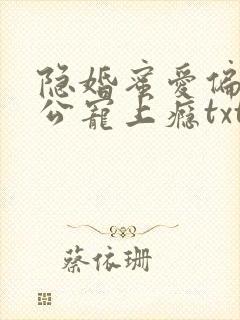 隐婚蜜爱偏
公宠上瘾txt
蔡依珊